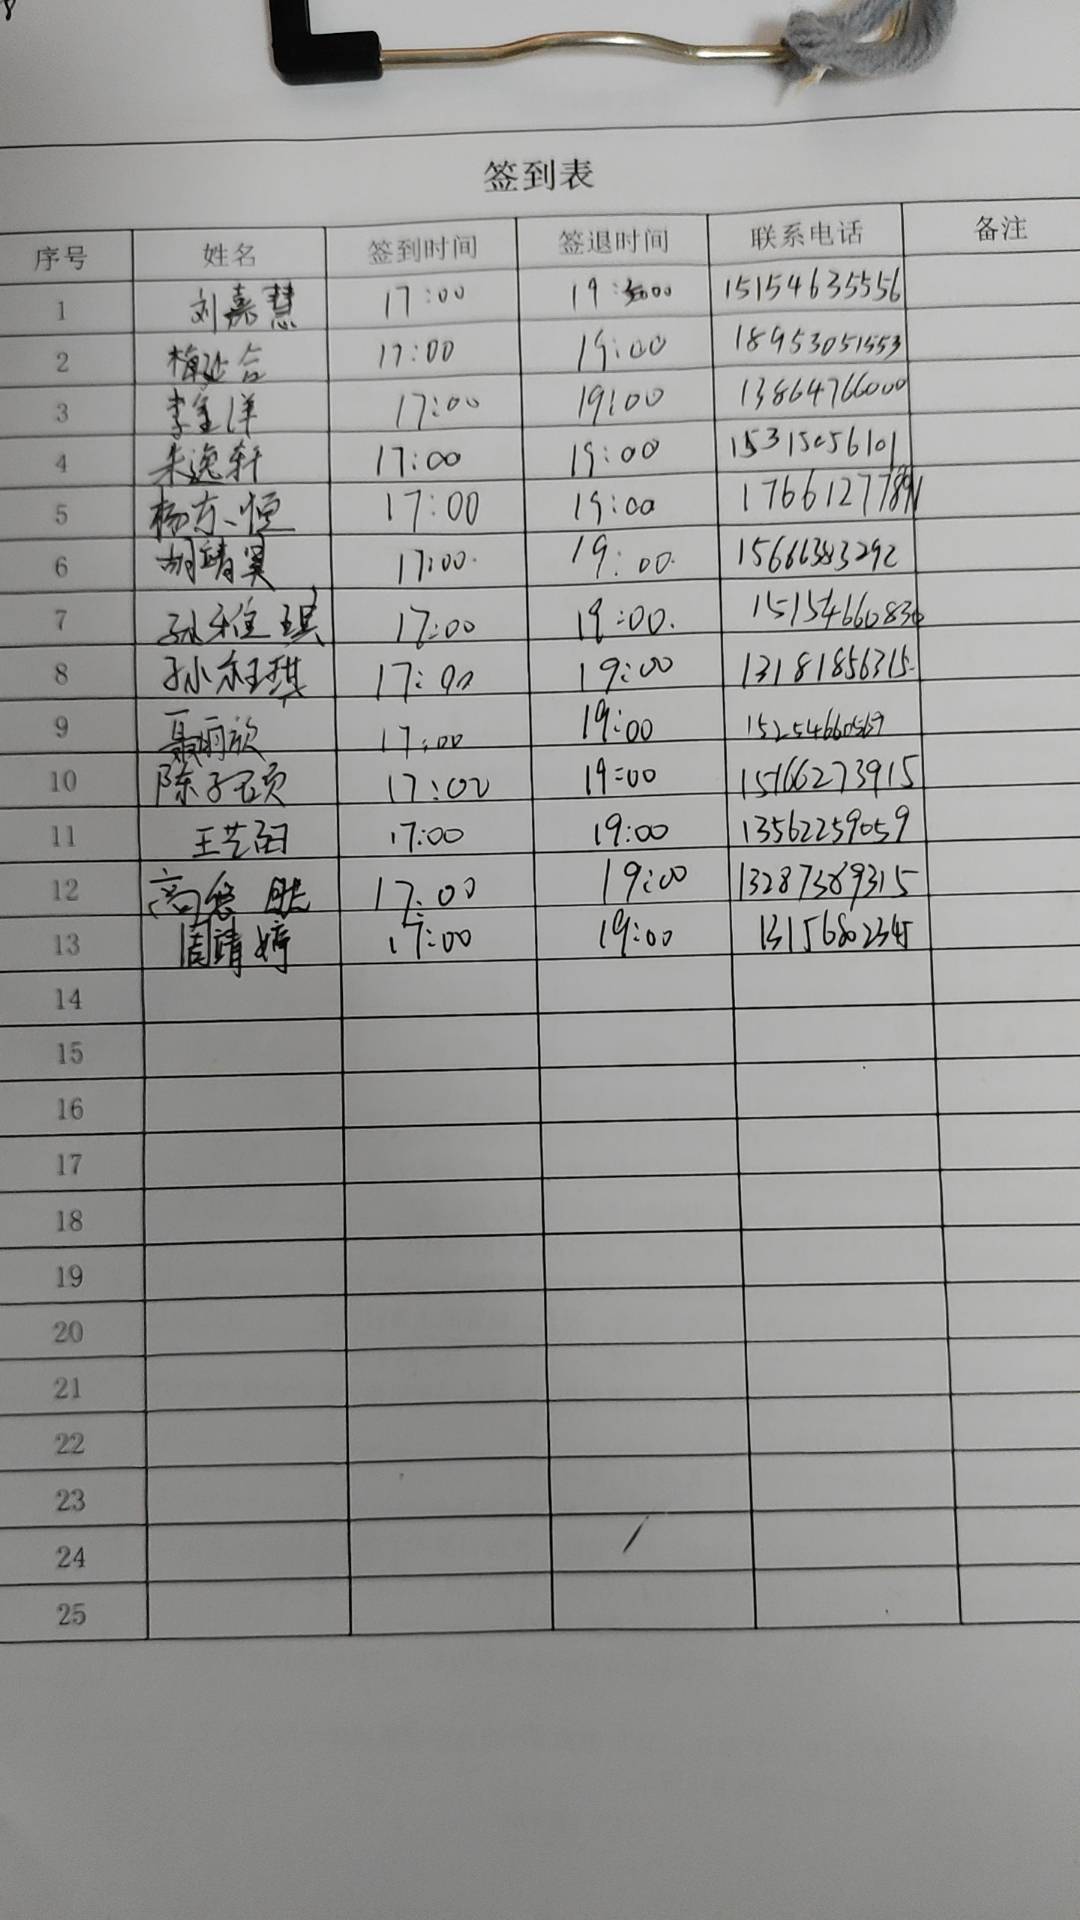 签到表
序号 姓名 签到时间 签退时间 联系电话 备注
1 刘嘉慧 17:00 19:00 15154635556
2 17:00 19:00 18953051553
3 李金洋 17:00 19:00 13864766000
4 朱逸轩 17:00 19:00 15315056101
5 杨东恒 17:00 19:00
6 胡靖昊 17:00 19:00 15666383292
7 孙雅琪 17:00 19:00 15154660830
8 孙钰琪 17:00 19:00 13181856315
9 聂雨欣 17:00 19:00 15254660569
10 陈子 17:00 19:00 15166273915
11 王艺 17:00 19:00 13562259059
12 高悠然 17:00 19:00 13287389315
13 周靖婷 17:00 19:00 13156802345
14
15
16
17
18
19
20
21
22
23
24
25